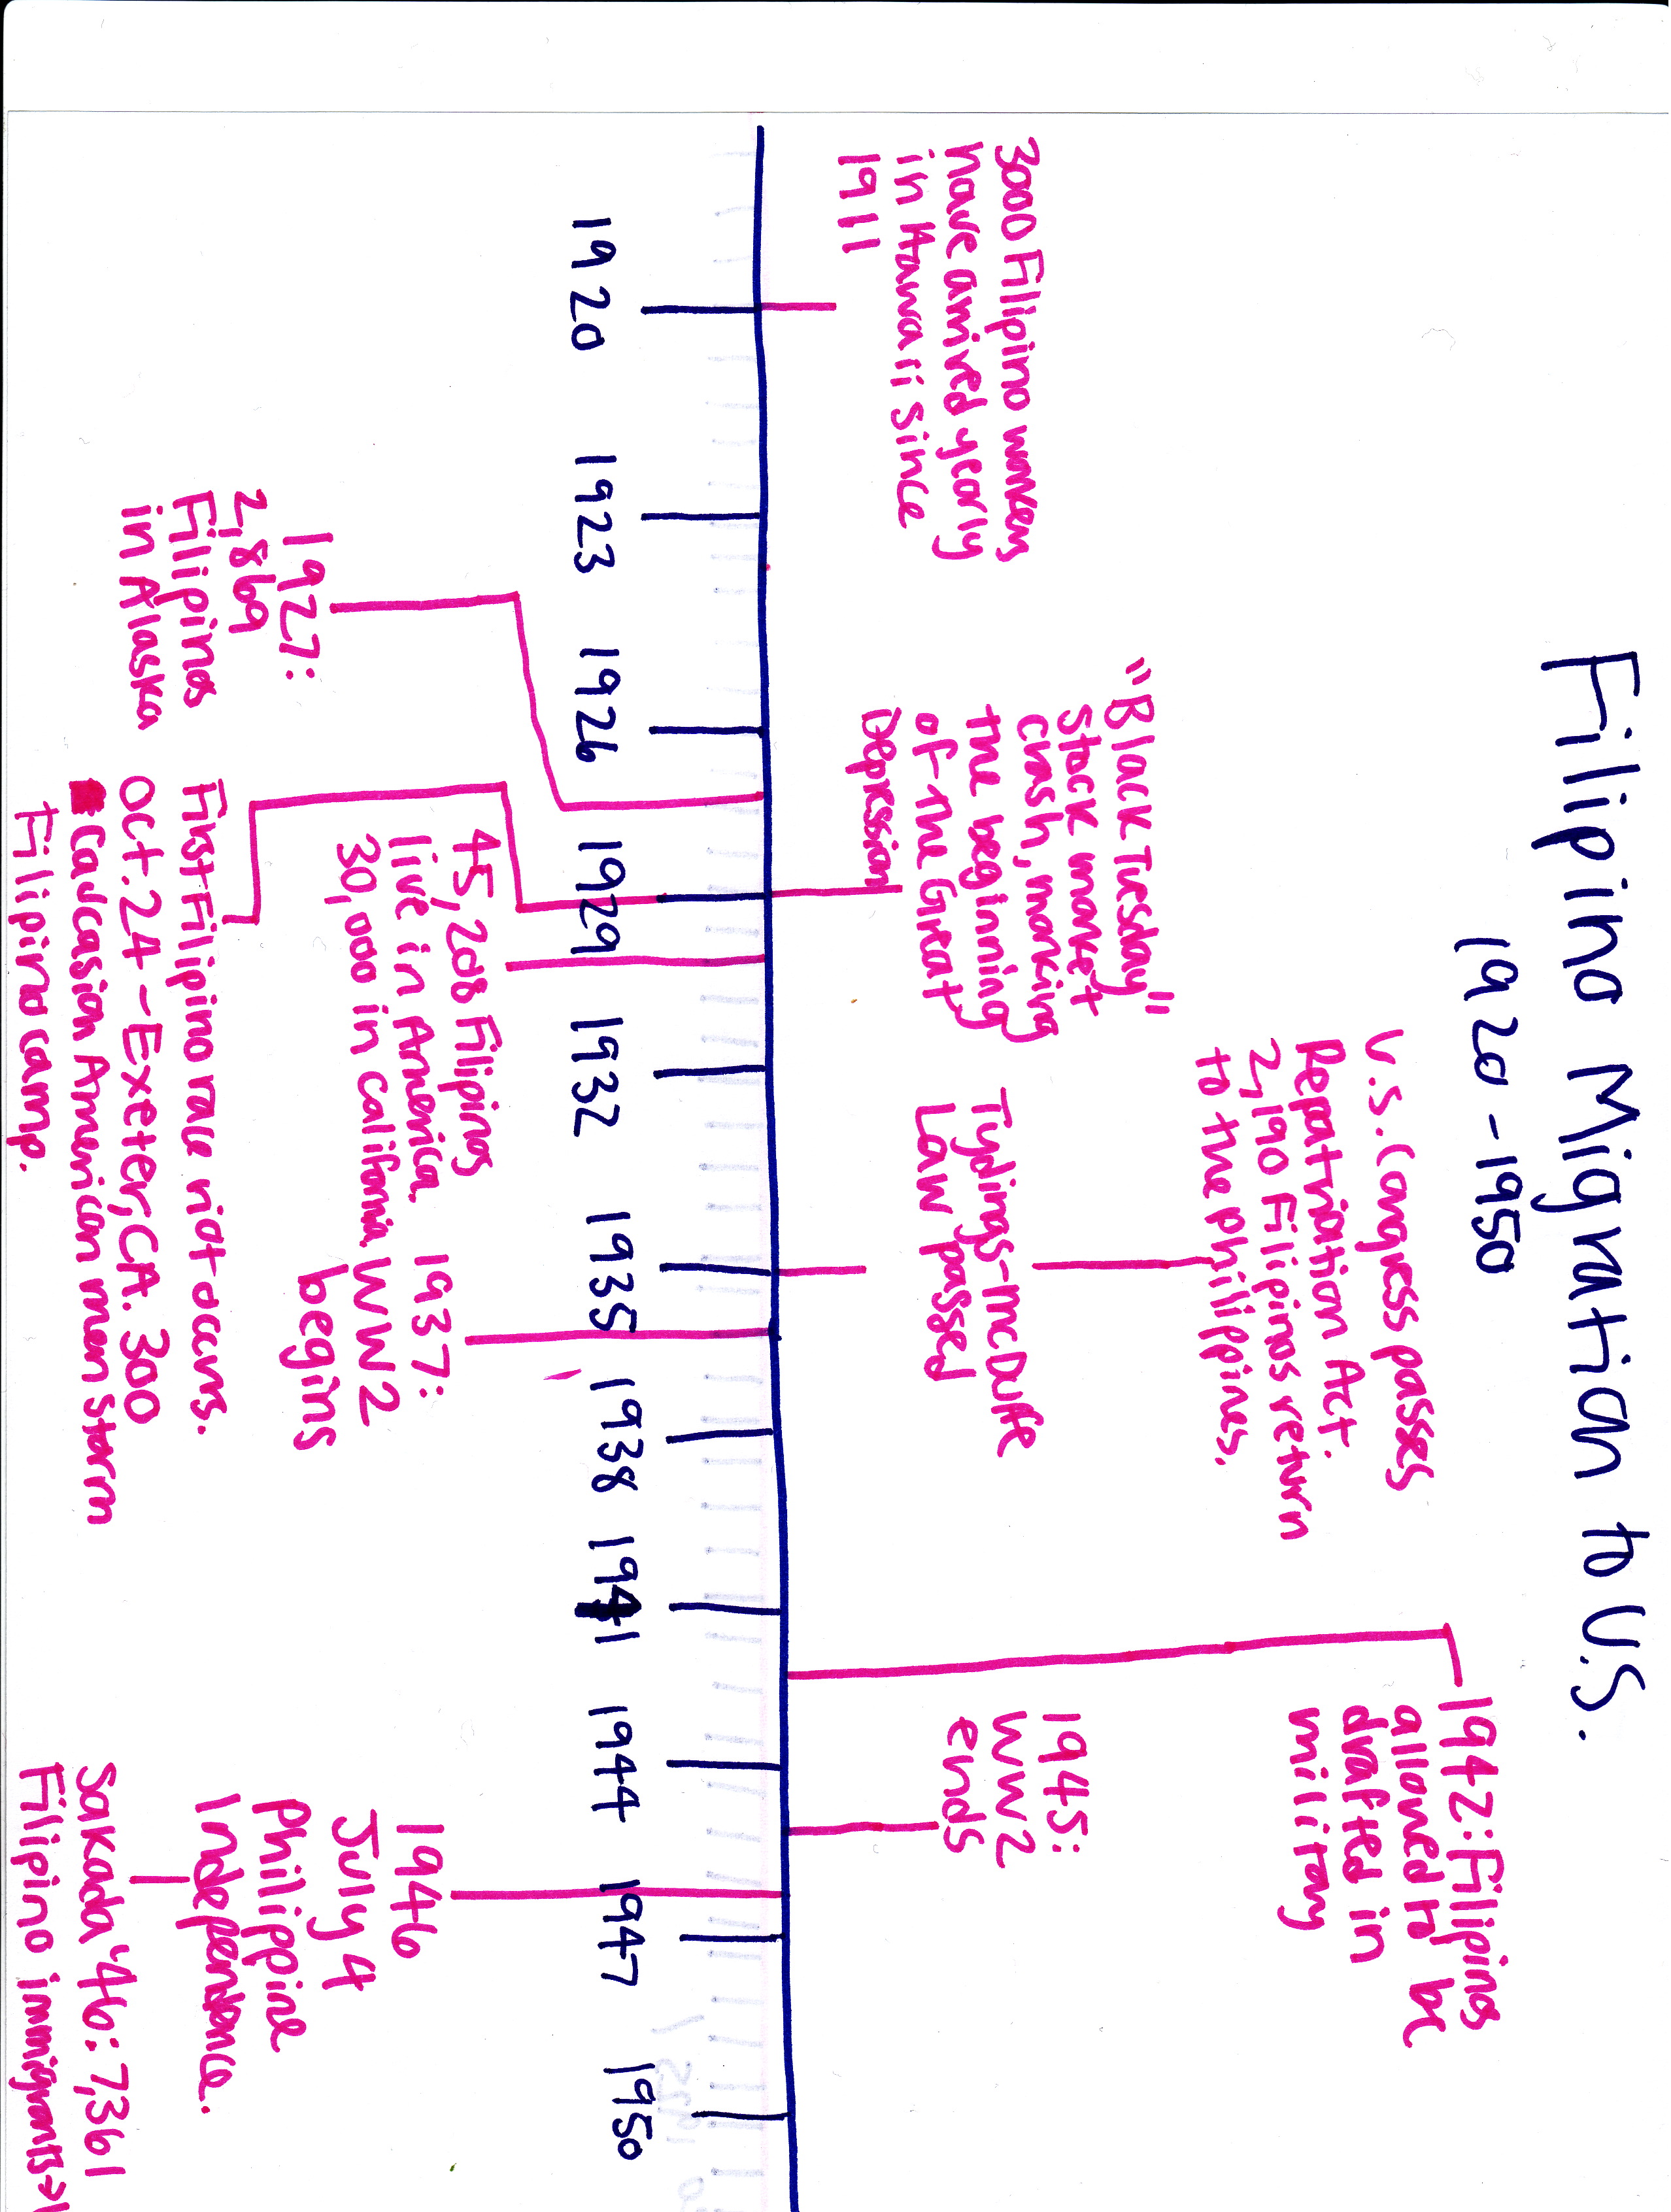 Filipino Migration to U.S.
1920-1950
3000 Filipino workers
have arrived yearly
in Hawaii since
1911
"Black Tuesday"
Stock market
crash, marking
the beginning
of the Great
Depression
U.S. Congress passes
Repatriation Act.
2,190 Filipinos return
to the philippines.
Tydings-McDuffe
Law passed
1942: Filipinos
allowed to be
drafted in
military
1945:
WW2
ends
1920 1923 1926 1929 1932 1935 1938 1941 1944 1947 1950
1927:
2,869
Filipinos
in Alaska
First Filipino race riot occurs.
Oct. 24 - Exeter, CA. 300
Caucasian American men storm
Filipino camp.
45,208 Filipinos
live in America.
30,000 in California.
1937:
WW2
begins
1946
July 4
Phillippine
Independence.
Sakada '46: 7,361
Filipino immigrants →